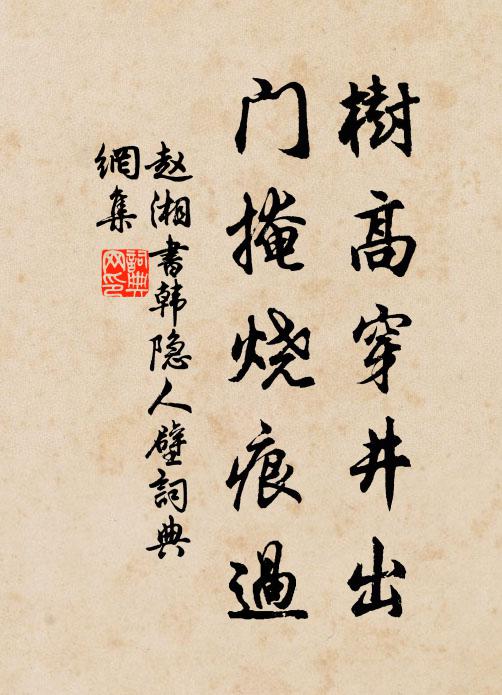 樹高穿井出
門掩烧痕過
赵湘書韩隐人壁詞典
網集
詞典
网印